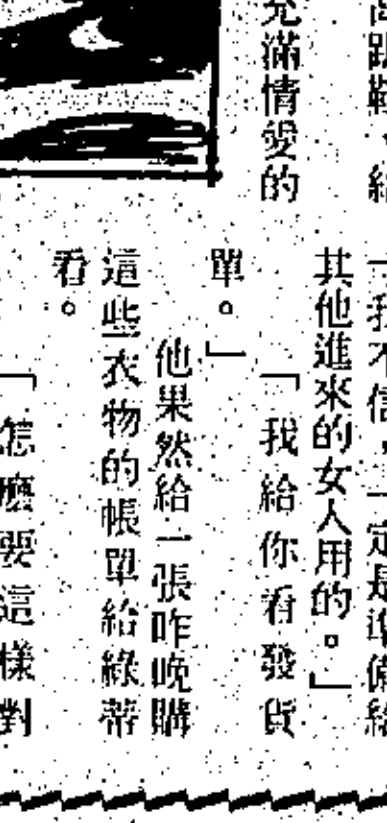 高跟鞋，給
充滿情愛的
「我不信，一定是準備給
其他進來的女人用的。」
「我給你看發貨
單。」
他果然給一張昨晚購
這些衣物的帳單給綠蒂
看。
「怎麼要這樣對